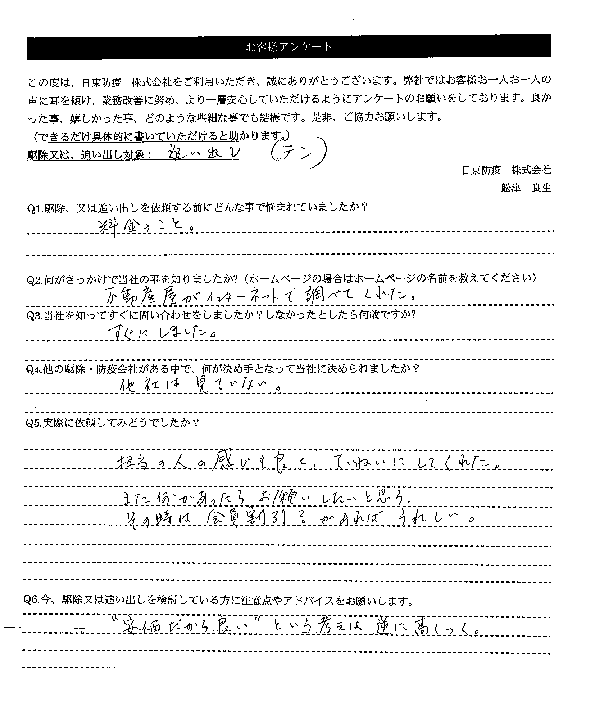 お客様アンケート
この度は、日東防疫 株式会社をご利用いただき、誠にありがとうございます。弊社ではお客様お一人お一人の
声に耳を傾け、業務改善に努め、より一層安心していただけるようにアンケートのお願いをしております。良か
った事、嬉しかった事、どのような些細な事でも結構です。是非、ご協力お願いします。
(できるだけ具体的に書いていただけると助かります。)
駆除又は、追い出し対象: 追い出し (テン)
日東防疫 株式会社
良生
Q1.駆除、又は追い出しを依頼する前にどんな事で悩まれていましたか?
料金のこと。
Q2.何がきっかけで当社の事を知りましたか?(ホームページの場合はホームページの名前を教えてください)
不動産屋がインターネットで調べてくれた。
Q3.当社を知ってすぐに問い合わせをしましたか?しなかったとしたら何故ですか?
すぐにしました。
Q4.他の駆除・防疫会社がある中で、何が決め手となって当社に決められましたか?
他社は見ていない。
Q5.実際に依頼してみどうでしたか?
担当の人の感じも良く、ていねいにしてくれた。
また何かあったらお願いしたいと思う。
その時は会員割引きがあればうれしい。
Q6.今、駆除又は追い出しを検討している方に注意点やアドバイスをお願いします。
"安価だから良い"という考えは逆に高くつく。